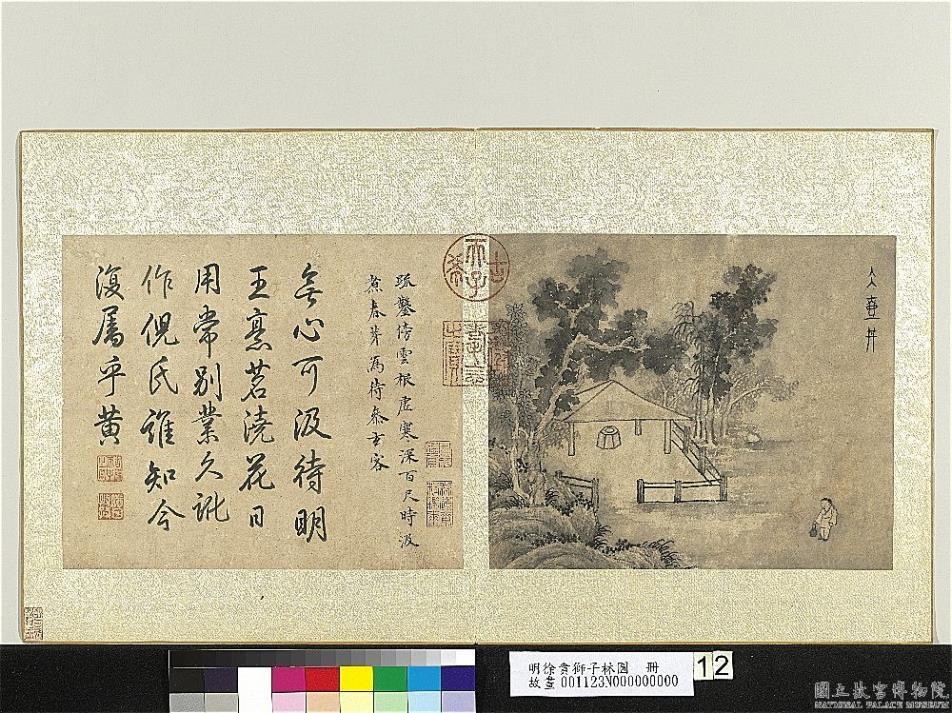 仌壺井
疏鑿傍雲根虛寒深百尺時汲
煮春芽爲待參玄客
無心可汲待明
王烹茗澆花日
用常別業久訛
作倪氏誰知今
復屬乎黃
古希天子
明徐賁獅子林圖 冊
故畫001123N000000000
12
國立故宮博物院
NATIONAL PALACE MUSEUM